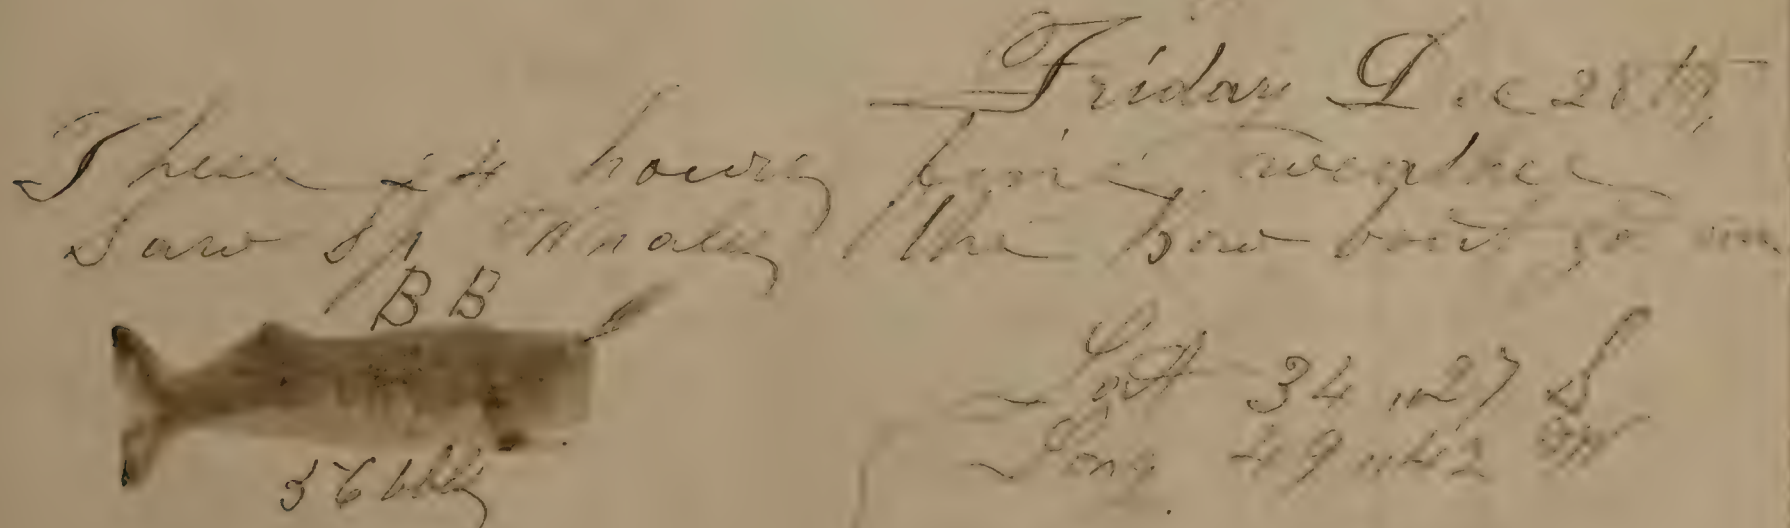 Friday Dec 28th
These 24 hours fine weather
Saw Sp Whales The bow boat got one
B B
Latt 34,,27 S
Long 49,,42 W
56 bbls